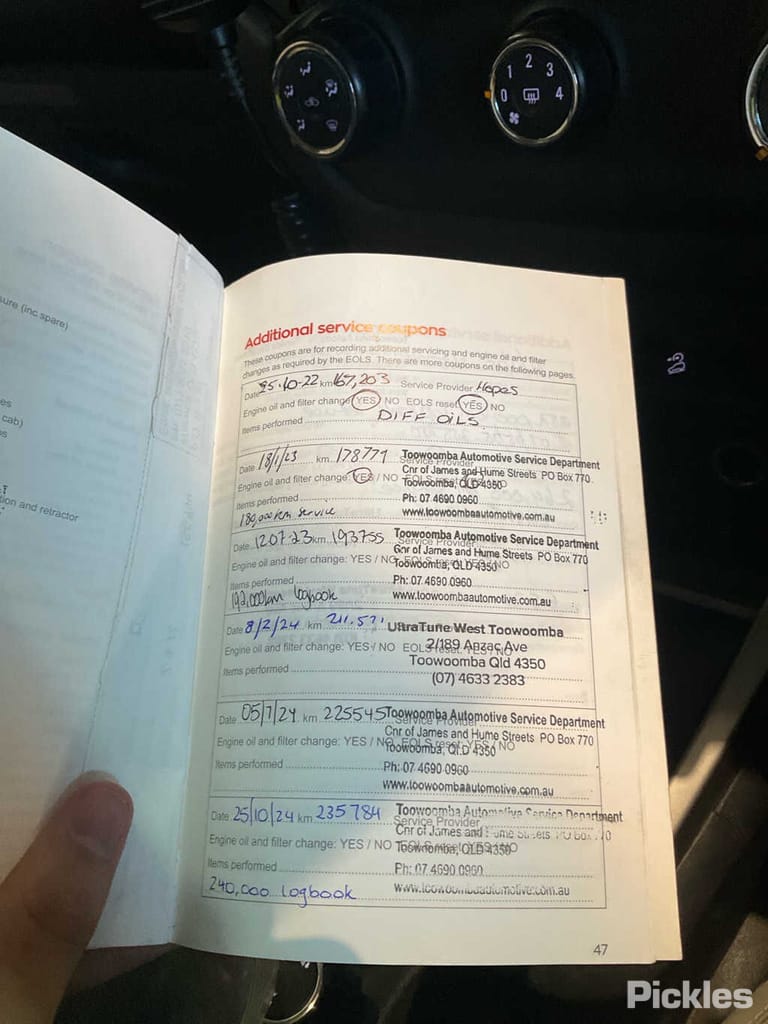 1 2 3
0 4
sure (inc spare)
cab)
tion and retractor
Additional service coupons
These coupons are for recording additional servicing and engine oil and filter
changes as required by the EOLS. There are more coupons on the following pages.
Date 25-10-22 km 167,203 Service Provider
Engine oil and filter change YES / NO EOLS reset YES / NO
Items performed DIFF OILS.
Date 18/1/23 km 178779 Service Provider Toowoomba Automotive Service Department
Cnr of James and Hume Streets PO Box 770
Engine oil and filter change: YES / NO
Toowoomba, QLD 4350
Items performed Ph: 07 4690 0960
180,000km service www.toowoombaautomotive.com.au
Date 12 07 23 km 193755 Service Provider Toowoomba Automotive Service Department
Cnr of James and Hume Streets PO Box 770
Engine oil and filter change: YES / NO EOLS reset: YES / NO
Toowoomba, QLD 4350
Items performed Ph: 07 4690 0960
logbook www.toowoombaautomotive.com.au
Date 8/2/24 km UltraTune West Toowoomba
2/189 Anzac Ave
Engine oil and filter change: YES / NO EOLS reset: YES / NO
Toowoomba Qld 4350
Items performed (07) 4633 2383
Date 05/7/24 km 225545 Service Provider Toowoomba Automotive Service Department
Cnr of James and Hume Streets PO Box 770
Engine oil and filter change: YES / NO EOLS reset: YES / NO
Toowoomba, QLD 4350
Items performed Ph: 07 4690 0960
www.toowoombaautomotive.com.au
Date 25/10/24 km 235784 Service Provider Toowoomba Automotive Service Department
Cnr of James and Hume Streets PO Box 770
Engine oil and filter change: YES / NO EOLS reset: YES / NO
Toowoomba, QLD 4350
Items performed Ph: 07 4690 0960
240,000 logbook www.toowoombaautomotive.com.au
47
Pickles